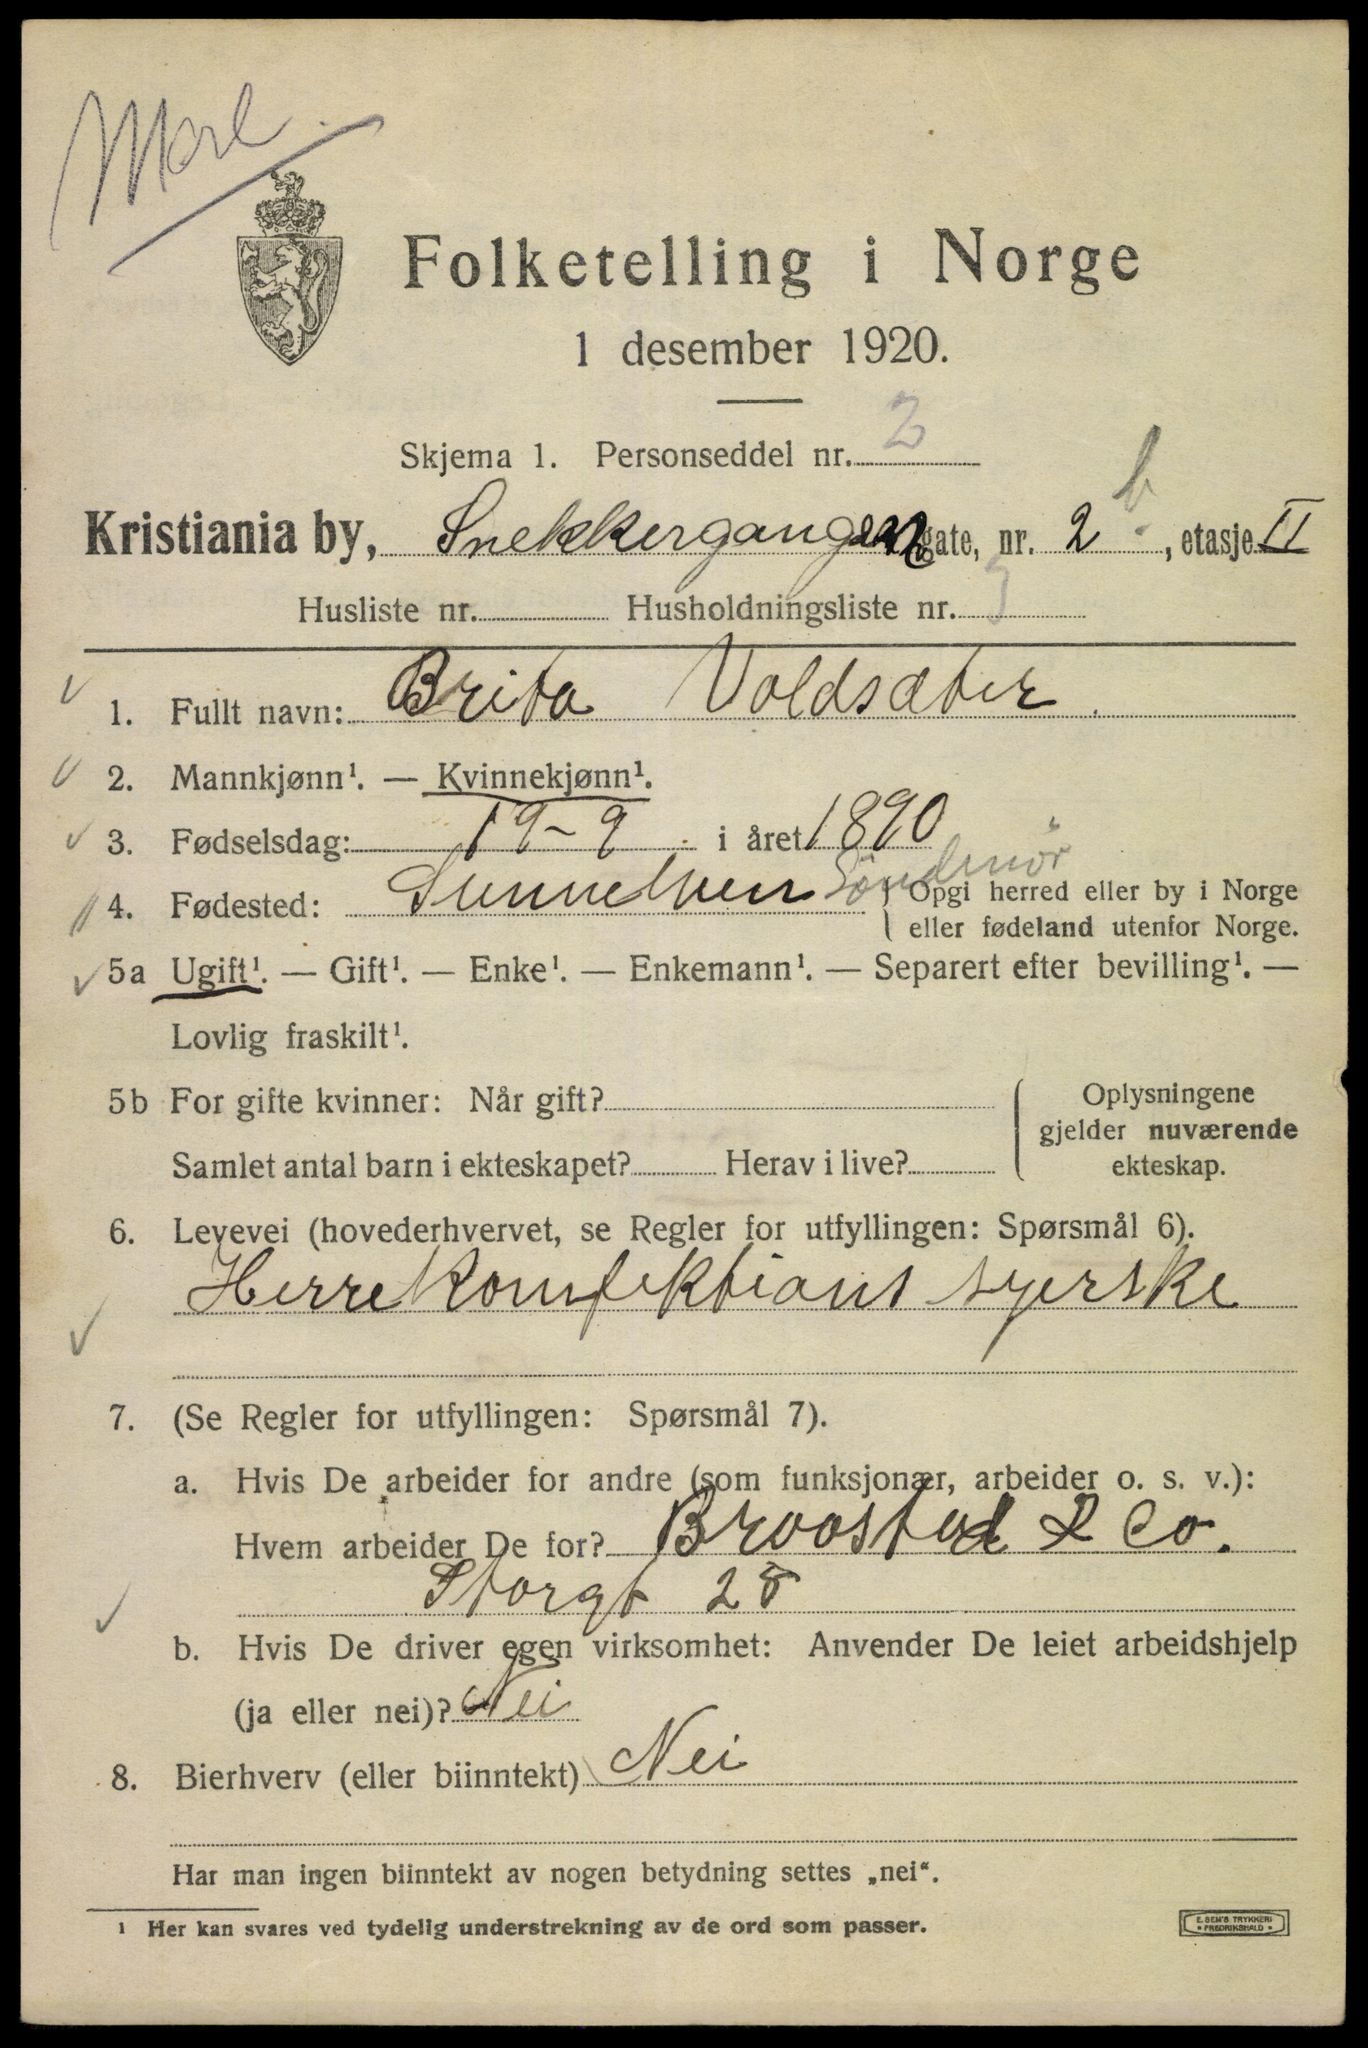 Møre
Folketelling i Norge
1 desember 1920.
Skjema 1. Personseddel nr. 2
Kristiania by, Snekkergangen gate, nr. 2 b, etasje II
Husliste nr. Husholdningsliste nr. 5
1. Fullt navn: Brita Voldsæter.
2. Mannkjønn¹. — Kvinnekjønn¹.
3. Fødselsdag: 19-9 i året 1890
4. Fødested: Sunnelven Søndmör Opgi herred eller by i Norge
eller fødeland utenfor Norge.
5a Ugift¹. — Gift¹. — Enke¹. — Enkemann¹. — Separert efter bevilling¹. —
Lovlig fraskilt¹.
5b For gifte kvinner: Når gift?
Samlet antal barn i ekteskapet? Herav i live?
Oplysningene
gjelder nuværende
ekteskap.
6. Levevei (hovederhvervet, se Regler for utfyllingen: Spørsmål 6).
Herrekonfektions syerske
7. (Se Regler for utfyllingen: Spørsmål 7).
a. Hvis De arbeider for andre (som funksjonær, arbeider o. s. v.):
Hvem arbeider De for? Broostad & Co.
Storgt 28
b. Hvis De driver egen virksomhet: Anvender De leiet arbeidshjelp
(ja eller nei)? Nei
8. Bierhverv (eller biinntekt) Nei
Har man ingen biinntekt av nogen betydning settes „nei“.
¹ Her kan svares ved tydelig understrekning av de ord som passer.
E. SEM'S TRYKKERI
• FREDRIKSHALD •